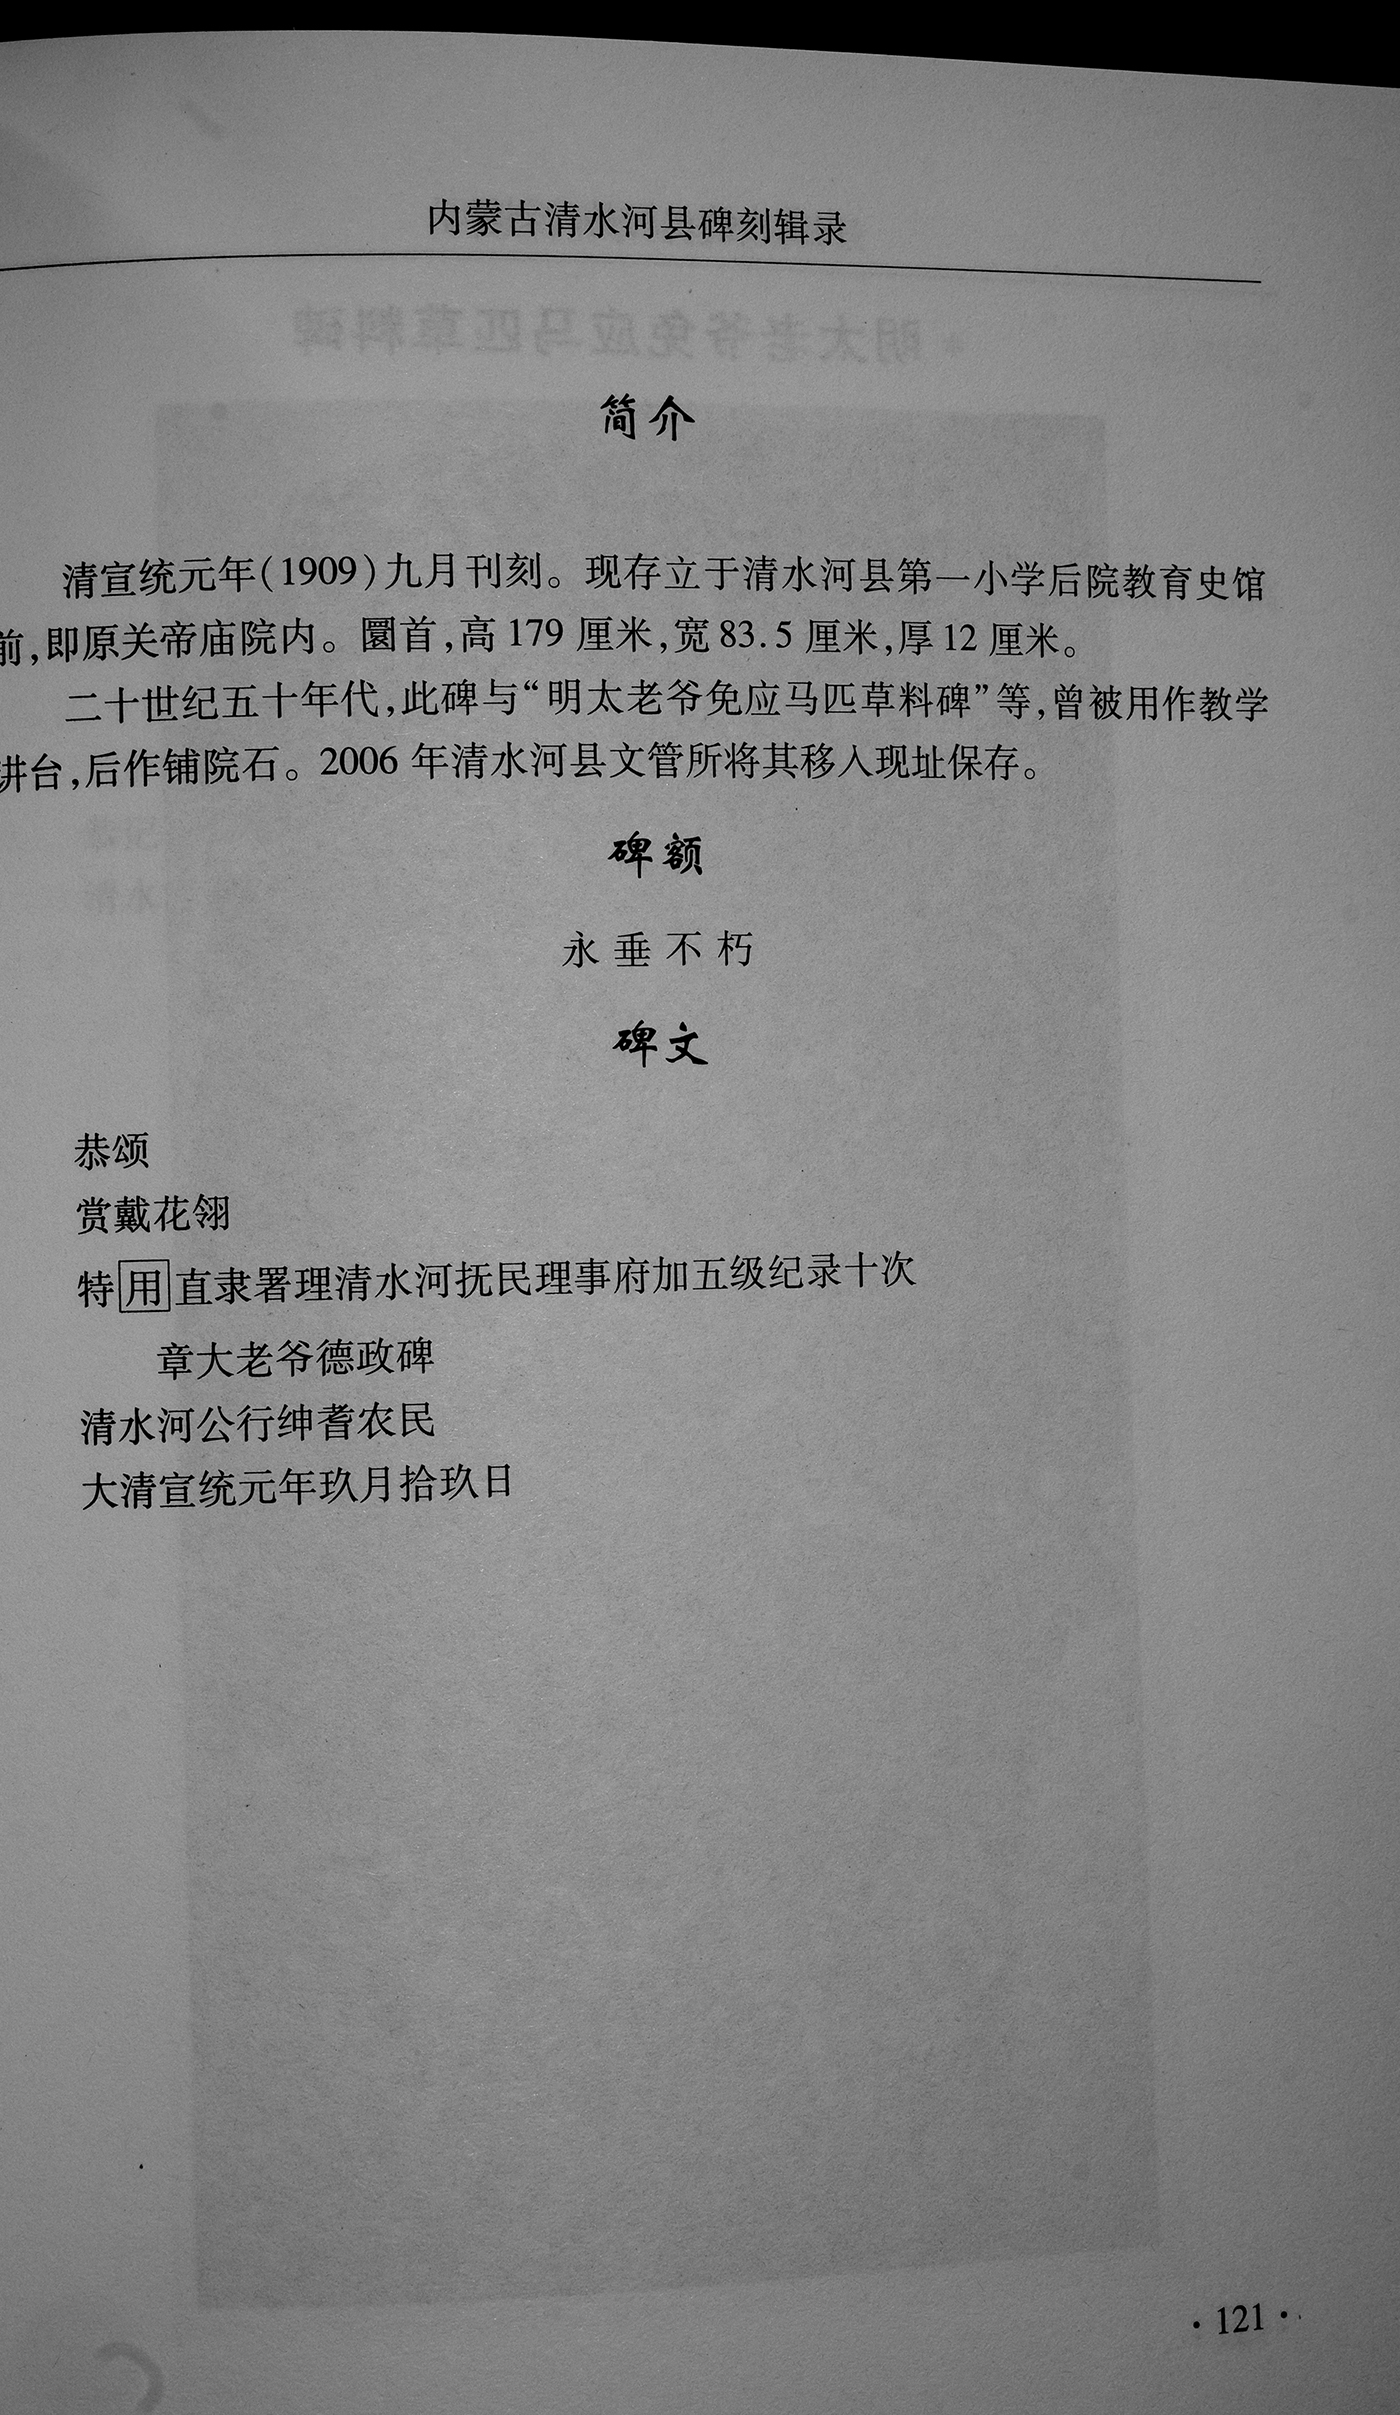 内蒙古清水河县碑刻辑录
简介
清宣统元年(1909)九月刊刻。现存立于清水河县第一小学后院教育史馆
前,即原关帝庙院内。圜首,高179厘米,宽83.5厘米,厚12厘米。
二十世纪五十年代,此碑与“明太老爷免应马匹草料碑”等,曾被用作教学
讲台,后作铺院石。2006年清水河县文管所将其移入现址保存。
碑额
永垂不朽
碑文
恭颂
赏戴花翎
特用直隶署理清水河抚民理事府加五级纪录十次
章大老爷德政碑
清水河公行绅耆农民
大清宣统元年玖月拾玖日
·121·